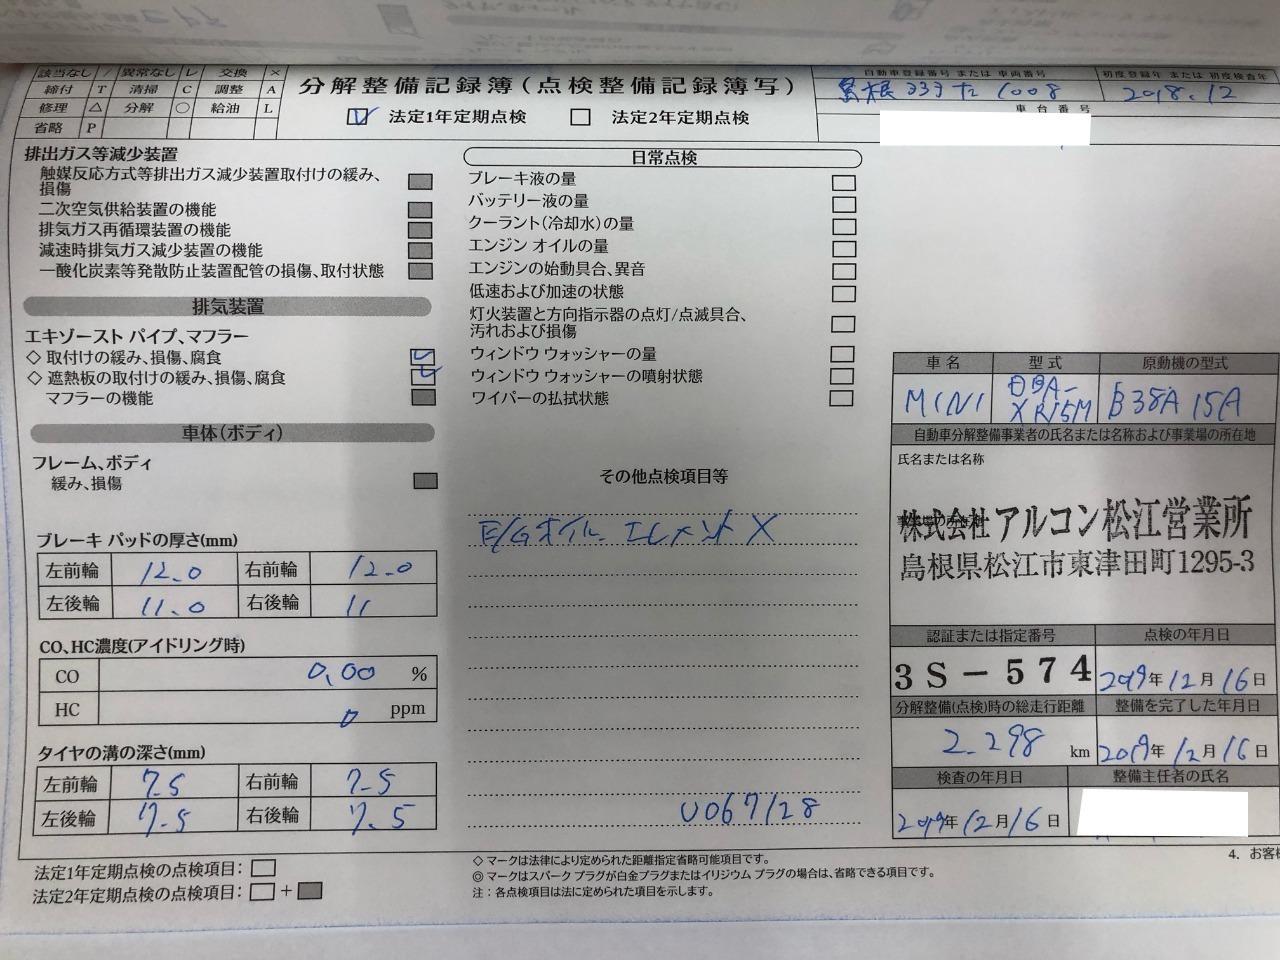 該当なし / 異常なし レ 交換 ×
締付 T 清掃 C 調整 A
修理 △ 分解 ○ 給油 L
省略 P
分解整備記録簿(点検整備記録簿写)
レ 法定1年定期点検 法定2年定期点検
自動車登録番号 または 車両番号
島根 333 た 1008
初度登録年 または 初度検査年
2018.12
車台番号
排出ガス等減少装置
触媒反応方式等排出ガス減少装置取付けの緩み、
損傷
二次空気供給装置の機能
排気ガス再循環装置の機能
減速時排気ガス減少装置の機能
一酸化炭素等発散防止装置配管の損傷、取付状態
排気装置
エキゾースト パイプ、マフラー
◇ 取付けの緩み、損傷、腐食 レ
◇ 遮熱板の取付けの緩み、損傷、腐食 レ
マフラーの機能
車体(ボディ)
フレーム、ボディ
緩み、損傷
ブレーキ パッドの厚さ(mm)
左前輪 12.0 右前輪 12.0
左後輪 11.0 右後輪 11
CO、HC濃度(アイドリング時)
CO 0.00 %
HC 0 ppm
タイヤの溝の深さ(mm)
左前輪 7.5 右前輪 7.5
左後輪 7.5 右後輪 7.5
法定1年定期点検の点検項目:
法定2年定期点検の点検項目: +
日常点検
ブレーキ液の量
バッテリー液の量
クーラント(冷却水)の量
エンジン オイルの量
エンジンの始動具合、異音
低速および加速の状態
灯火装置と方向指示器の点灯/点滅具合、
汚れおよび損傷
ウィンドウ ウォッシャーの量
ウィンドウ ウォッシャーの噴射状態
ワイパーの払拭状態
その他点検項目等
E/Gオイル エレメント ×
U067128
◇ マークは法律により定められた距離指定省略可能項目です。
◎ マークはスパーク プラグが白金プラグまたはイリジウム プラグの場合は、省略できる項目です。
注:各点検項目は法に定められた項目を示します。
車名 型式 原動機の型式
MINI DBA-XR15M B38A15A
自動車分解整備事業者の氏名または名称および事業場の所在地
氏名または名称
株式会社 アルコン松江営業所
島根県松江市東津田町1295-3
認証または指定番号 点検の年月日
3S-574 2019年12月16日
分解整備(点検)時の総走行距離 整備を完了した年月日
2.298 km 2019年12月16日
検査の年月日 整備主任者の氏名
2019年12月16日
4. お客様